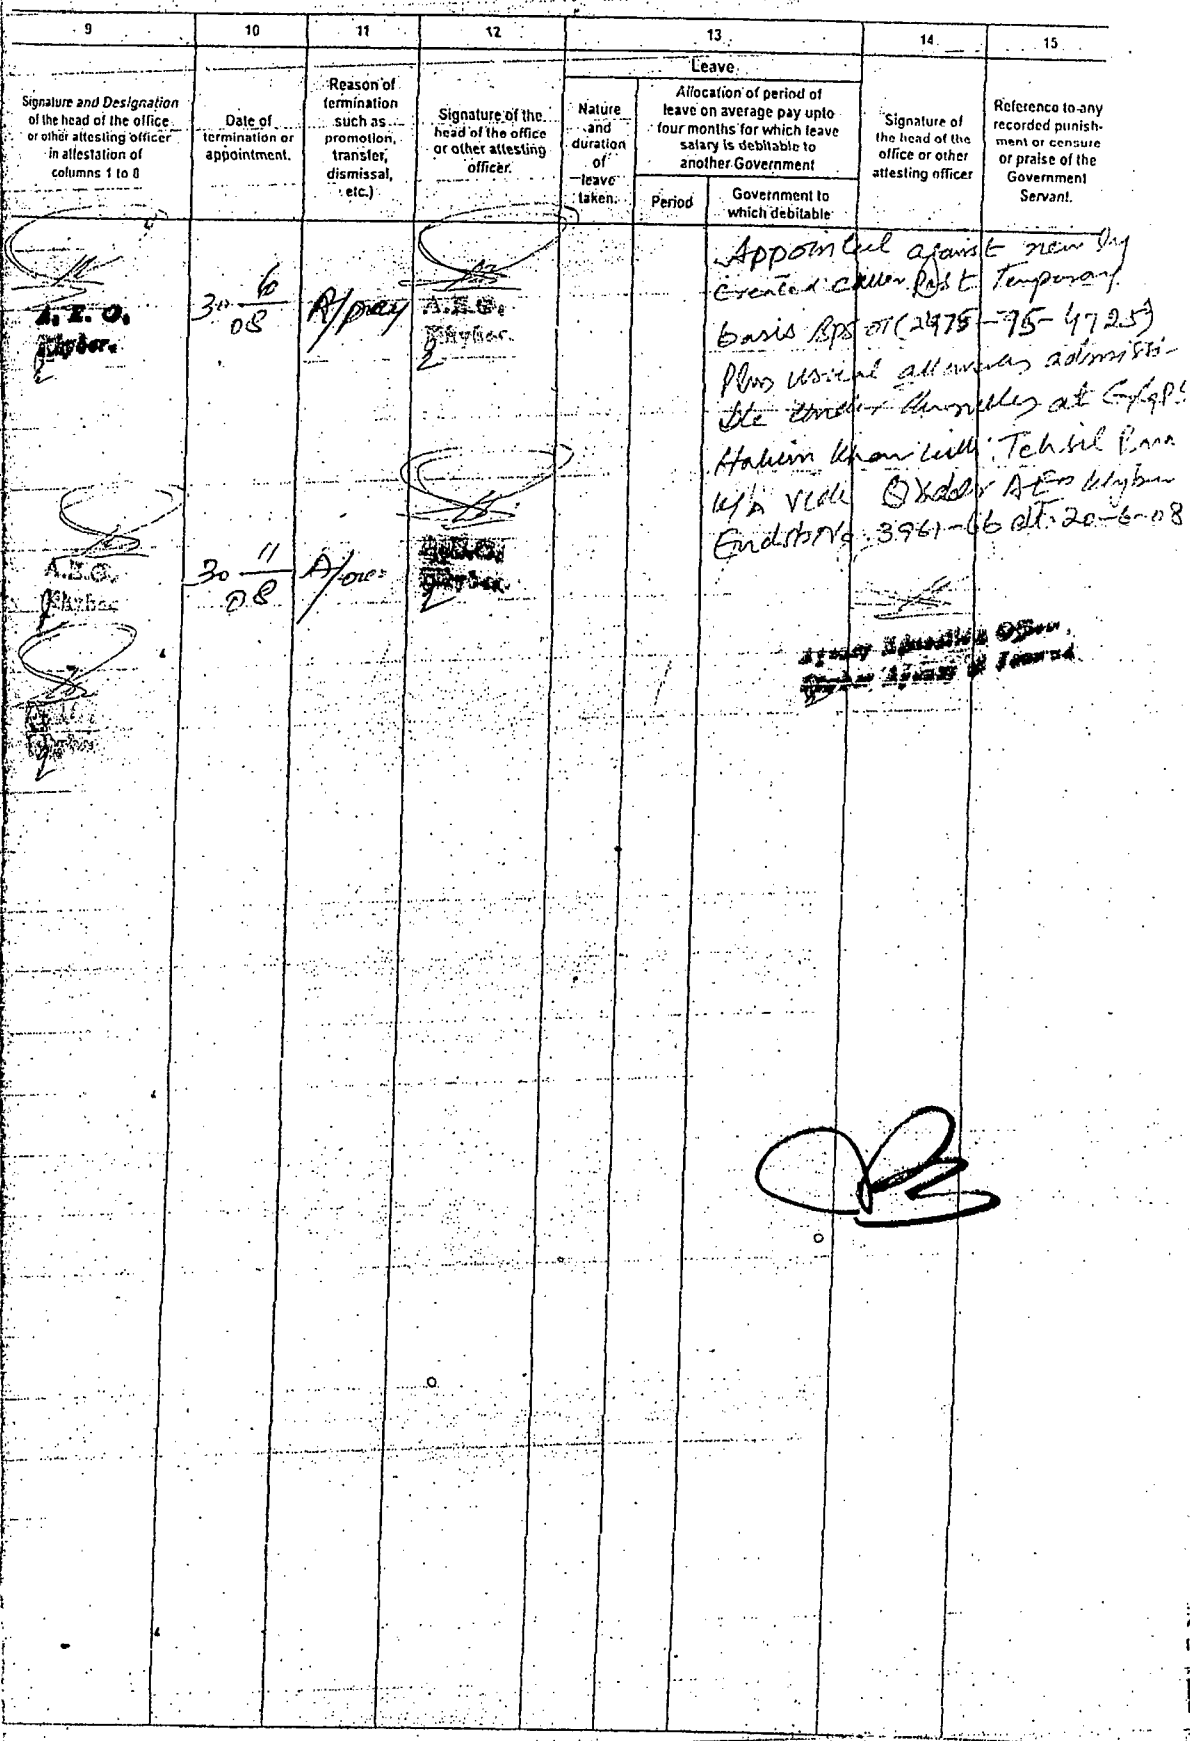 9 10 11 12 13 14 15
Leave
Signature and Designation
of the head of the office
or other attesting officer
in attestation of
columns 1 to 8
Date of
termination or
appointment.
Reason of
termination
such as
promotion,
transfer,
dismissal,
etc.)
Signature of the
head of the office
or other attesting
officer.
Nature
and
duration
of
leave
taken.
Allocation of period of
leave on average pay upto
four months for which leave
salary is debitable to
another Government
Period
Government to
which debitable
Signature of
the head of the
office or other
attesting officer
Reference to any
recorded punish-
ment or censure
or praise of the
Government
Servant.
A. E. O.
Khyber.
30 6/08
A.E.O.
Khyber.
Appointed against newly
created Post Temporary
basis Bps 01 (2475-75-4725)
Plus usual allowances admissi-
ble under the rules at
Hakim Khan Tehsil Bara
vide Order AEO Khyber
Endst No. 3961-66 dt. 20-6-08
A.E.O.
Khyber
30 11/08
A.E.O.
Khyber.
Agency Education Officer,
Khyber Agency at Jamrud